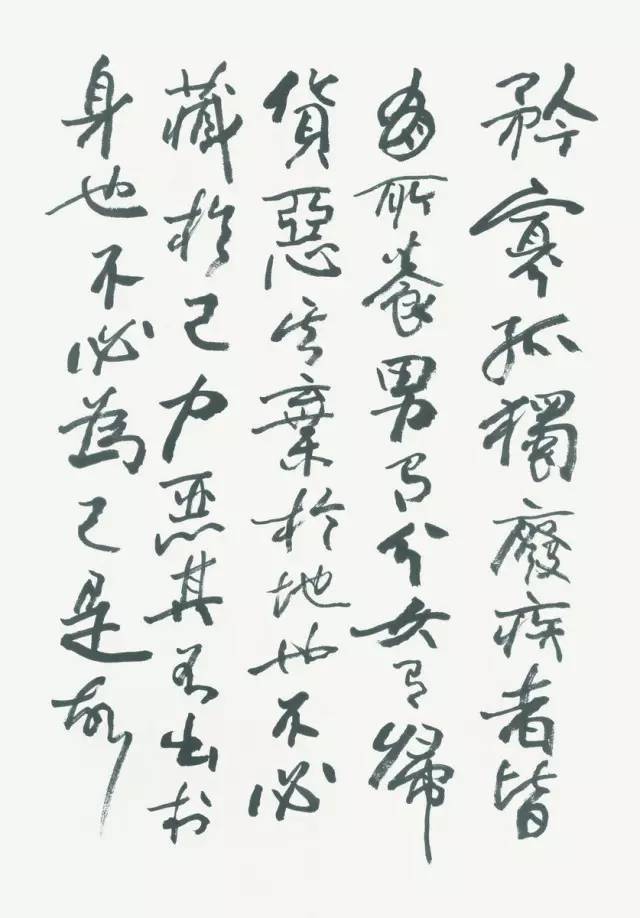 矜寡孤獨廢疾者皆
有所養男有分女有歸
貨惡其棄於地也不必
藏於己力惡其不出於
身也不必為己是故